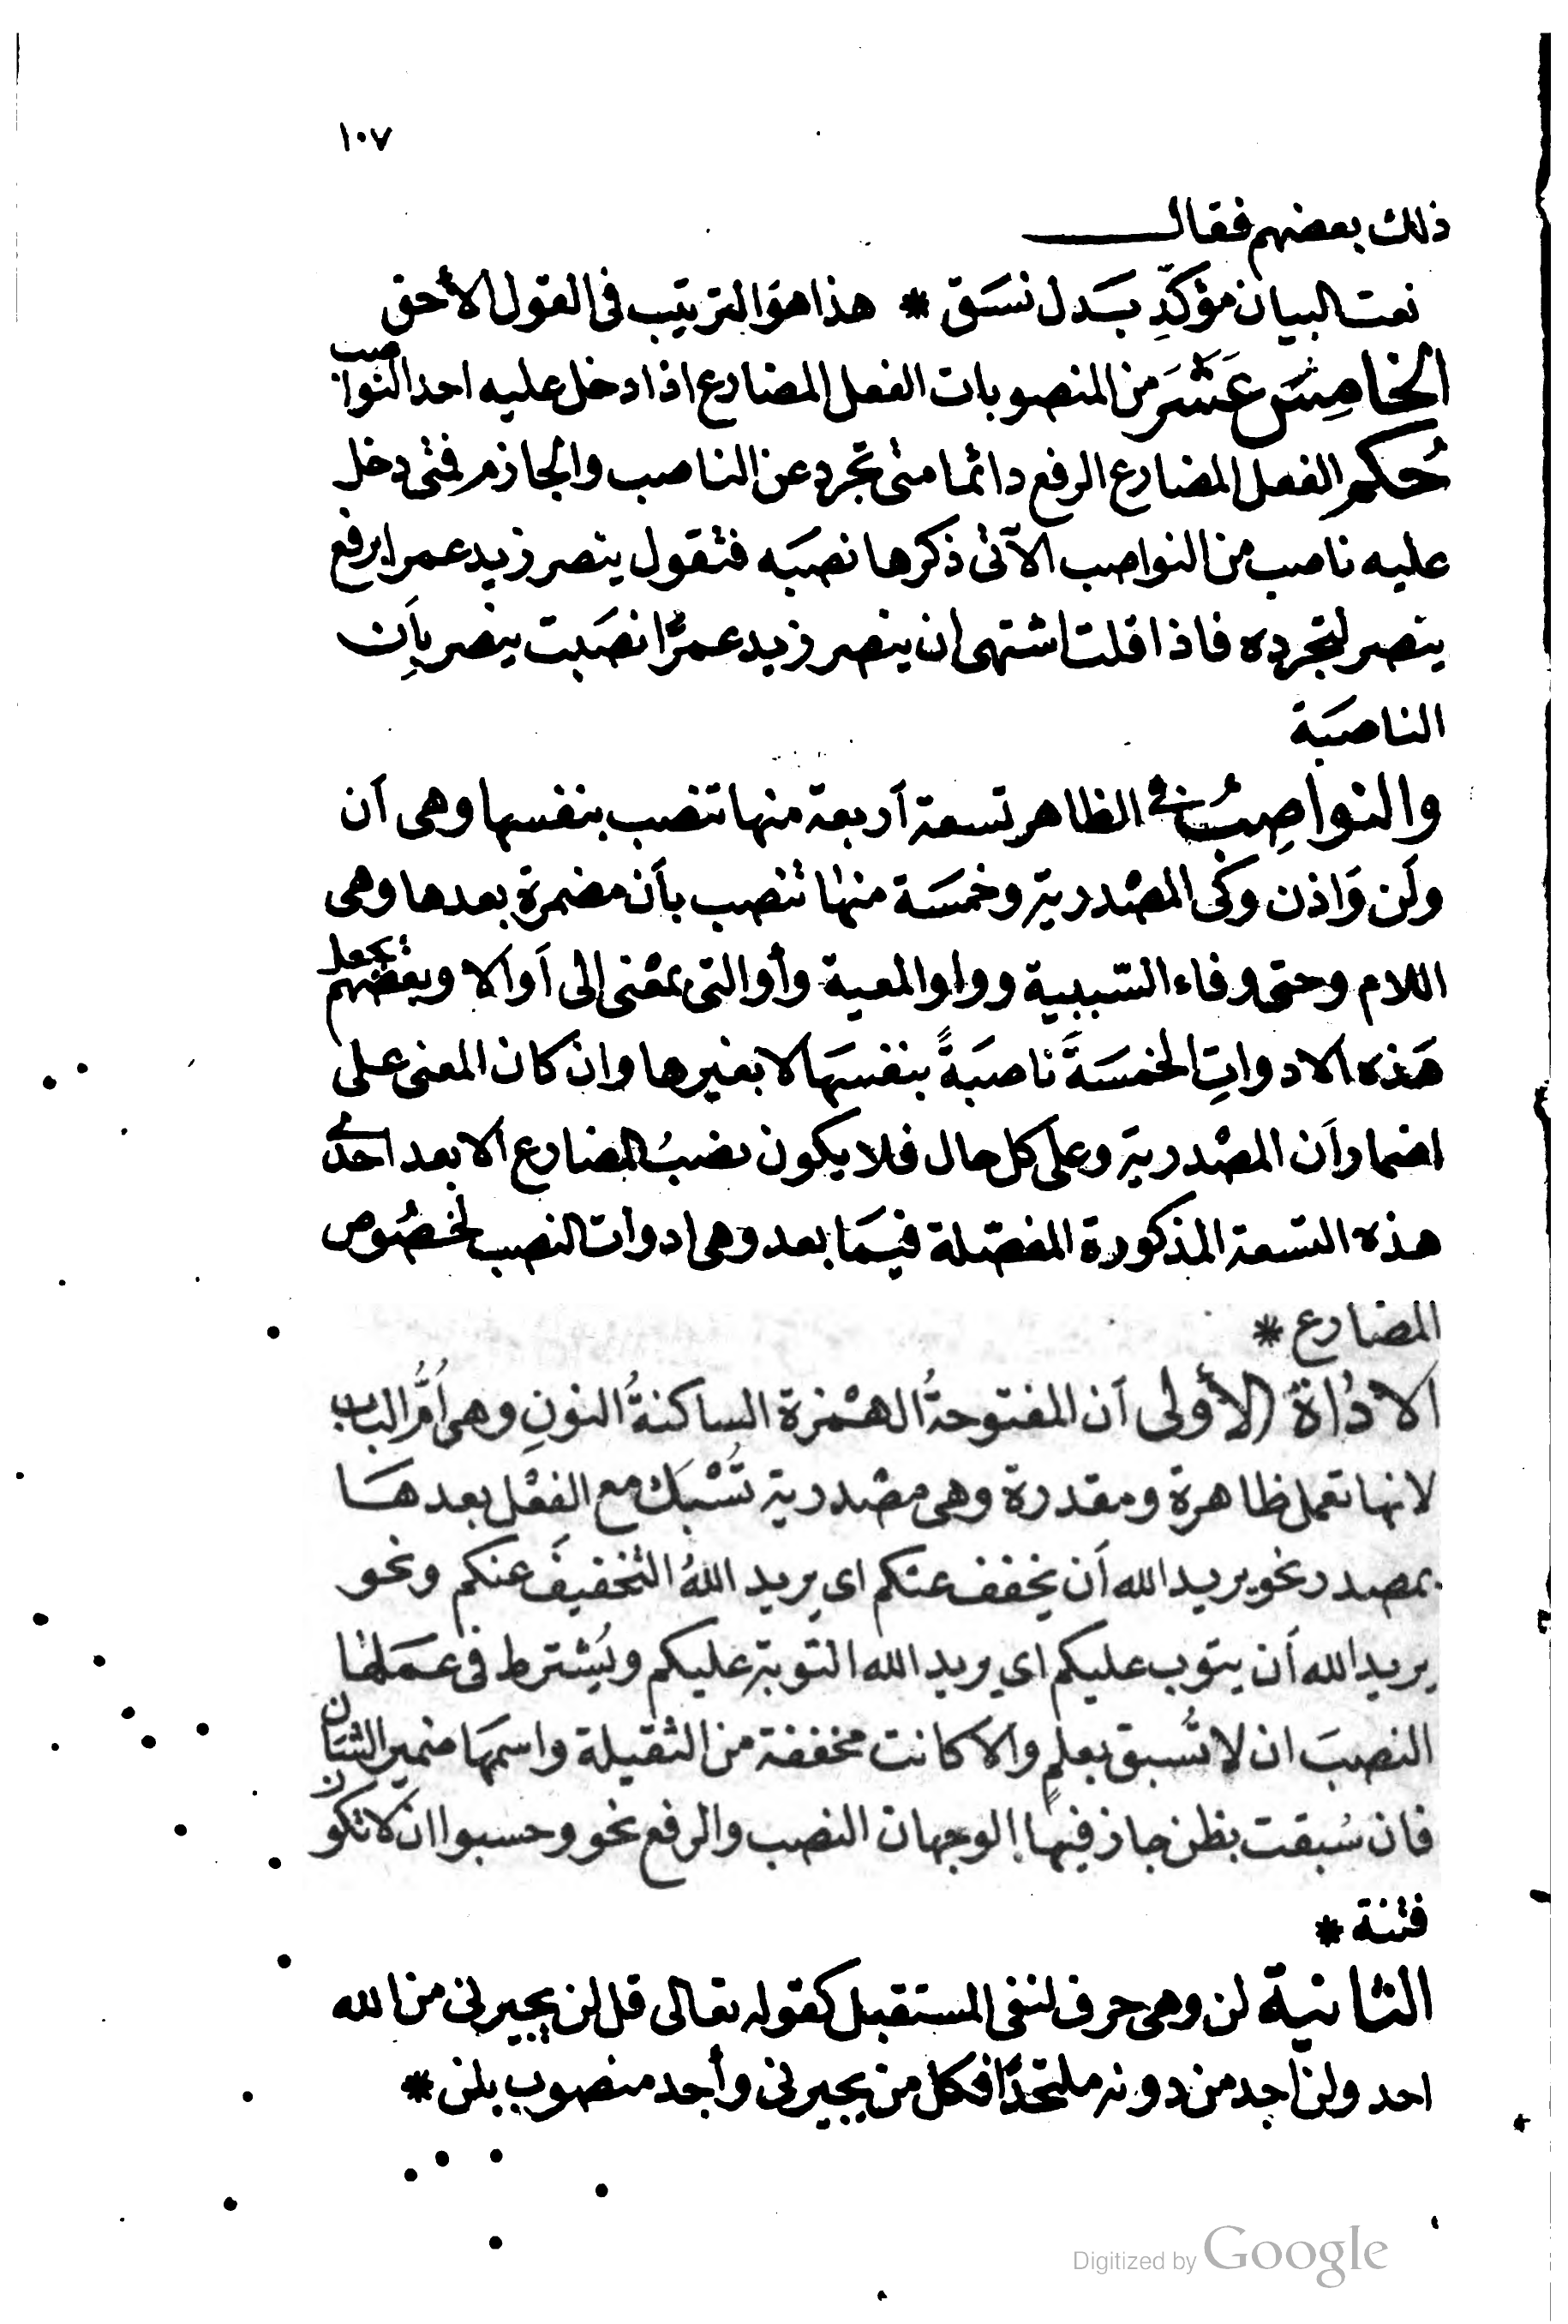 ١٠٧
ذلك بعضهم فقال
نعت البيان مؤكّدِ بَدل نسَق * هذا هوَ الترتيب فى القول الأحق
الخامِسَ عَشَرَ من المنصوبات الفعل المضارع اذا دخل عليه احد النواصب
حُكم الفعل المضارع الرفع دائما متى تجرد عن الناصب والجازم فمتى دخل
عليه ناصب من النواصب الآتى ذكرها نصبَه فتقول ينصر زيد عمرا برفع
ينصر لتجرده فاذا قلت اشتهى ان ينصر زيد عمرًا نصَبت ينصر بأَن
الناصبَة
والنواصِبُ فى الظاهر تسعة أربعة منها تنصب بنفسها وهى أن
ولَن وَاذن وَكى المصْدرية وخمسَة منها تنصب بأَن مضمرة بعدها وهى
اللام وحتى وفاء السّببية وواو المعية وأو التى بمعْنى إلى أو الا وبعضهم يجعل
هَذه الادواتِ الخمسَةَ ناصبَةً بنفسهَا لا بغيرها وان كان المعنى على
اضمار أن المصْدرية وعلى كل حال فلا يكون نصبُ المضارع الا بعد احدى
هذه التسعة المذكورة المفصّلة فيمَا بعد وهى ادوات النصب لخصُوص
المضارع *
الادَاةُ الأولى أن المفتوحةُ الهمْزة الساكنةُ النونِ وهى أمُّ الباب
لانها تعمل ظاهرة ومقدرة وهى مصْدرية تُسْبَك مع الفِعْل بعدهَا
بمصدر نحو يريد الله أن يخفف عنكم اى يريد اللهُ التخفيفَ عنكم ونحو
يريد الله أن يتوب عليكم اى يريد الله التوبة عليكم ويُشترط فى عَملها
النصبَ ان لا تُسبق بعلمٍ والا كانت مخففة من الثقيلة واسمهَا ضمير الشان
فان سُبقت بظن جاز فيها الوجهان النصب والرفع نحو وحسبوا ان لا تكون
فتنة *
الثانية لن وهى حرف لنفى المستقبل كقوله تعالى قل لن يجيرنى من الله
احد ولن اجد من دونه ملتحدًا فكل من يجيرنى وأجد منصوب بلن *
Digitized by Google